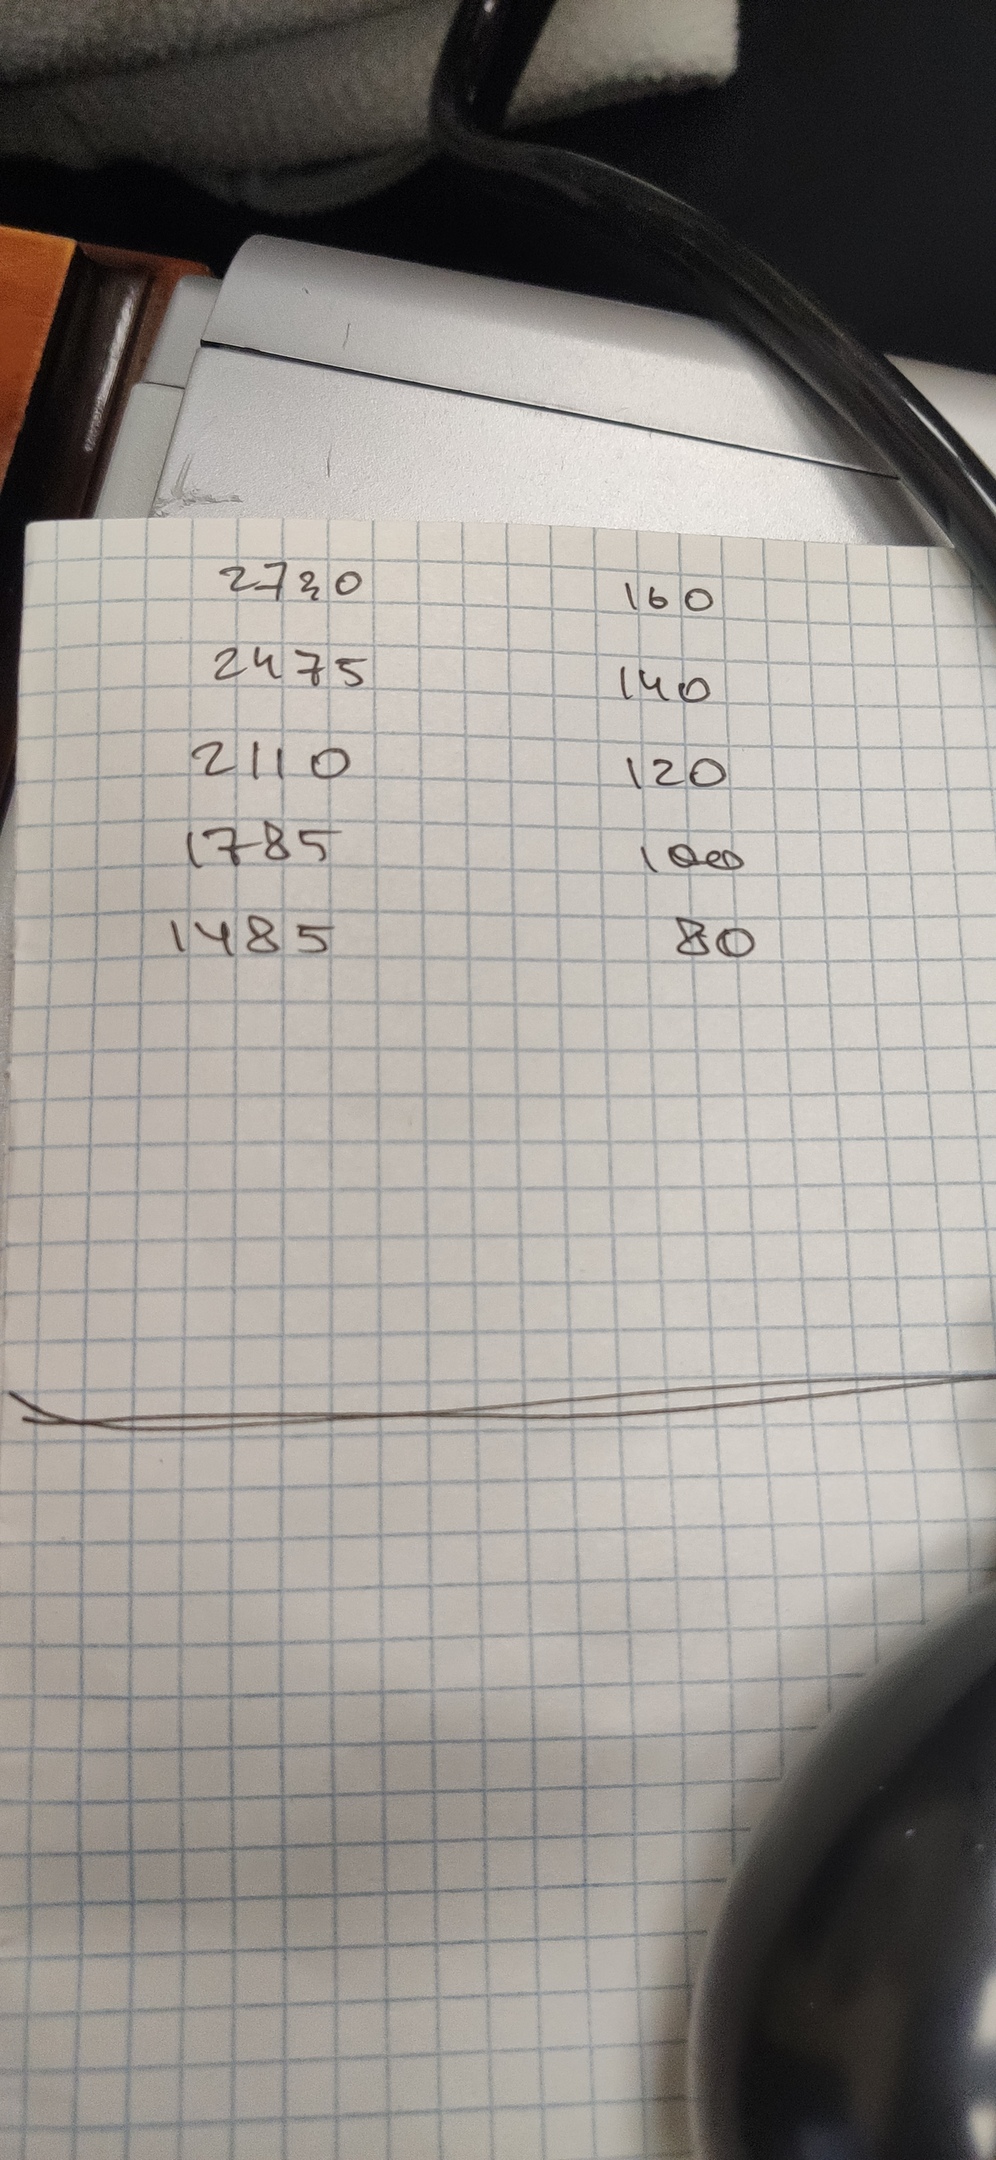 2720 160
2475 140
2110 120
1785 100
1485 80